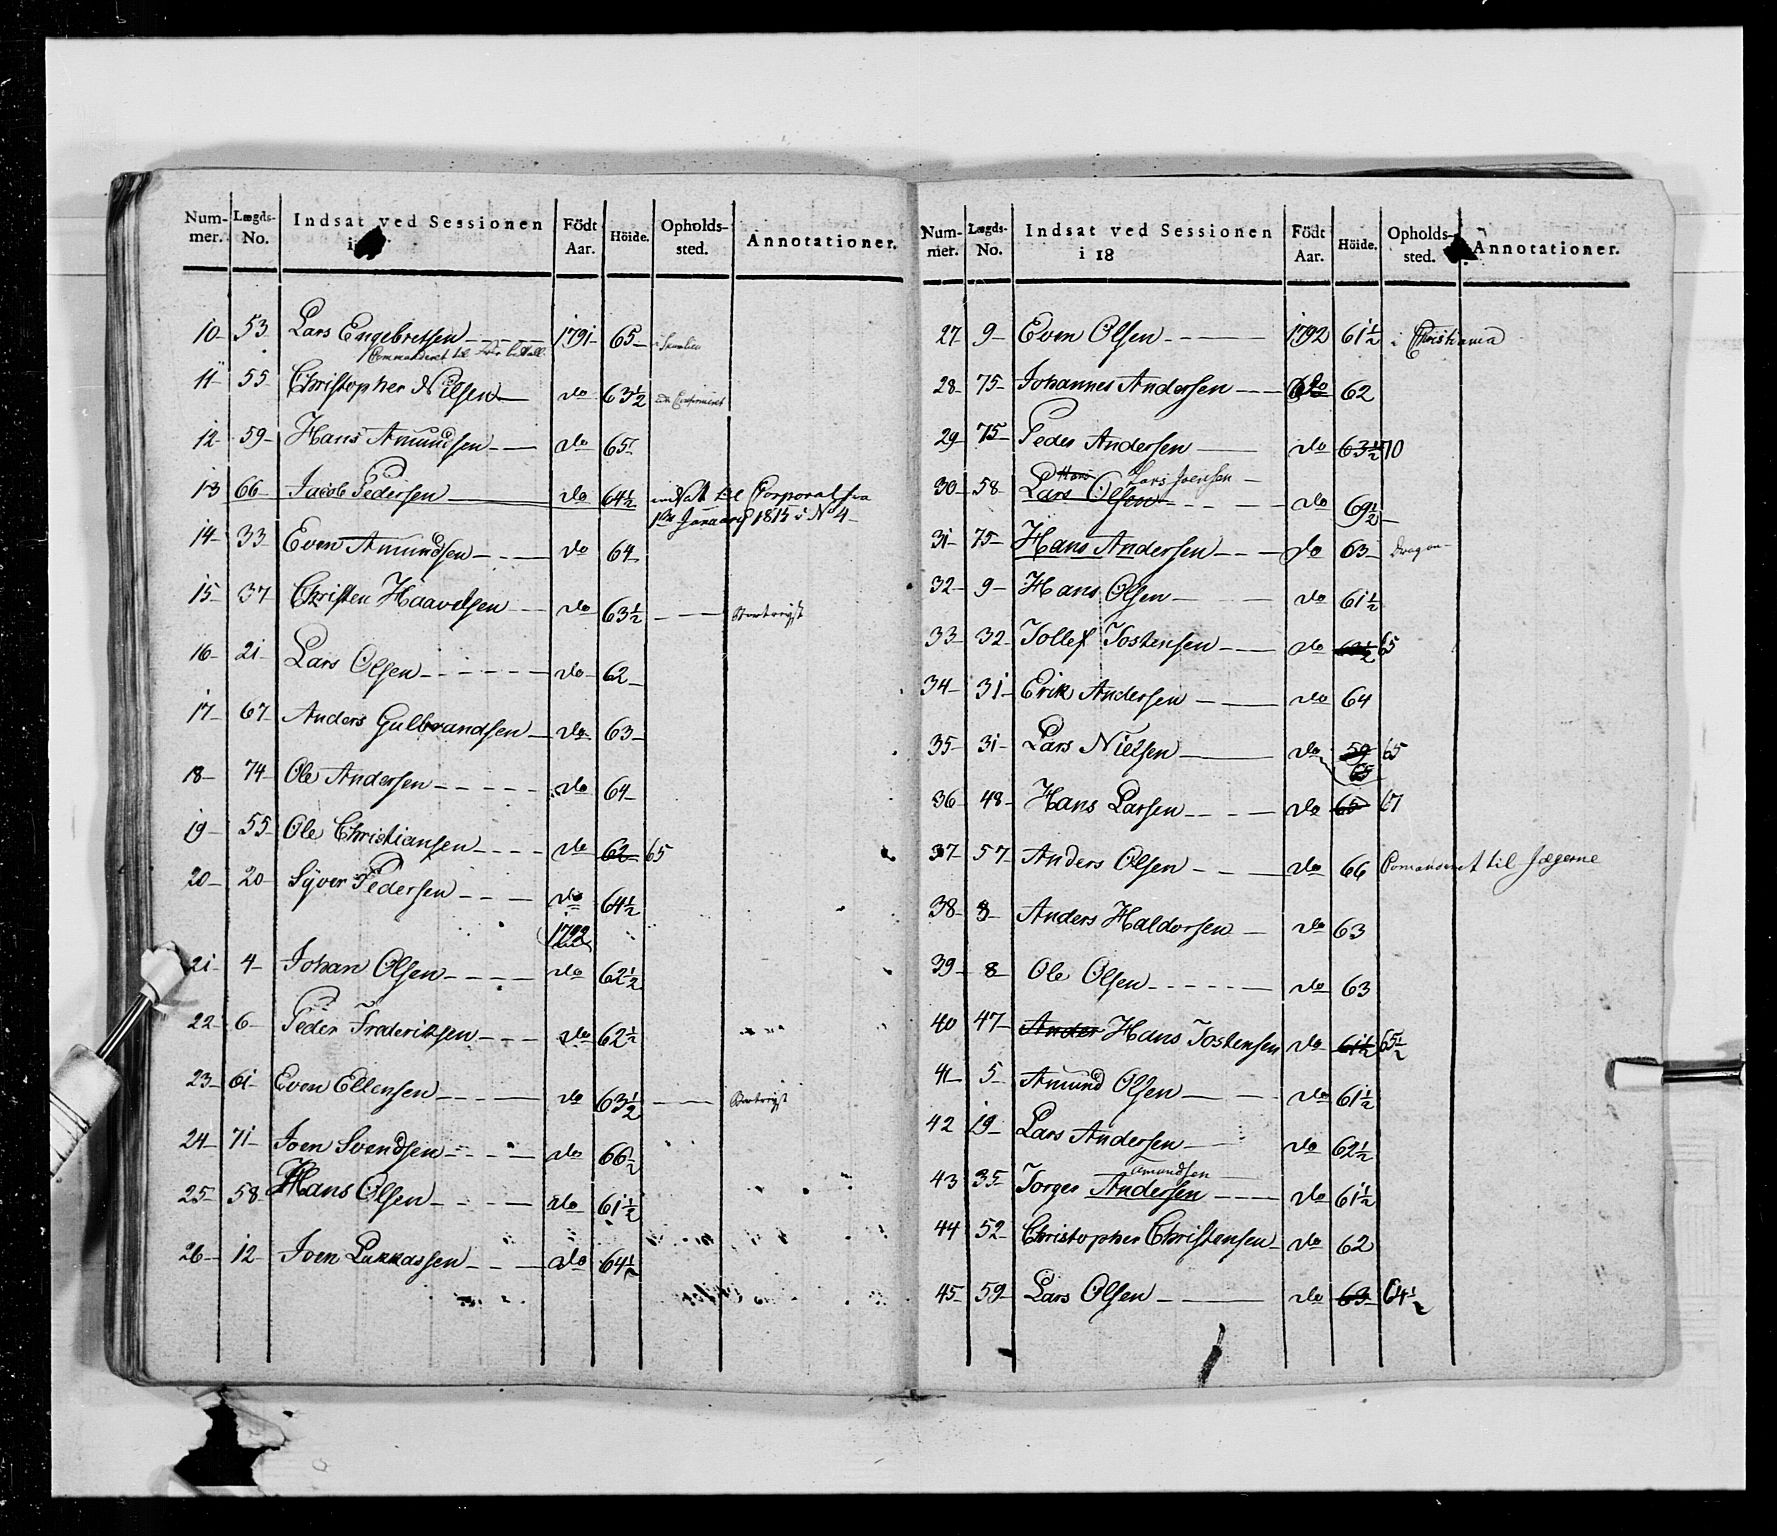 Num-mer. Lægds-No. Indsat ved Sessionen i Födt Aar. Höide. Opholds-sted. Annotationer.
10 53 Lars Engebretsen 1791 65
Commanderet til
11 55 Christopher Nilsen do 63½
12 59 Hans Amundsen do 65
13 66 Jacob Pedersen do 64½ indsat til Corporal fra
1ste January 1815 i No 4
14 33 Even Amundsen do 64
15 37 Christen Haavelsen do 63½ Bortrejst
16 21 Lars Olsen do 62
17 67 Anders Gulbrandsen do 63
18 74 Ole Andersen do 64
19 55 Ole Christiansen do 62 65
20 20 Syver Pedersen do 64½
1792
21 4 Johan Olsen do 62½
22 6 Peder Frederiksen do 62½
23 61 Even Ellensen do 63½ Bortrejst
24 71 Joen Svendsen do 66½
25 58 Hans Olsen do 61½
26 12 Joen Lukkassen do 64½
Num-mer. Lægds-No. Indsat ved Sessionen i 18 Födt Aar. Höide. Opholds-sted. Annotationer.
27 9 Even Olsen 1792 61½ i Christiania
28 75 Johannes Andersen do 62
29 75 Peder Andersen do 63½ 70
Hans Lars Joensen
30 58 Lars Olsen do 69½
31 75 Hans Andersen do 63 Dragon
32 9 Hans Olsen do 61½
33 32 Tollef Tostensen do 65
34 31 Erik Andersen do 64
35 31 Lars Nielsen do 59 65
65
36 48 Hans Larsen do 65 67
37 57 Anders Olsen do 66 Comanderet til Jægerne
38 8 Anders Haldorsen do 63
39 8 Ole Olsen do 63
40 47 Ander Hans Tostensen do 61½ 65½
41 5 Amund Olsen do 61½
42 19 Lars Andersen do 62½
Amundsen
43 35 Torger Andersen do 61½
44 52 Christopher Christensen do 62
45 59 Lars Olsen do 63 64½